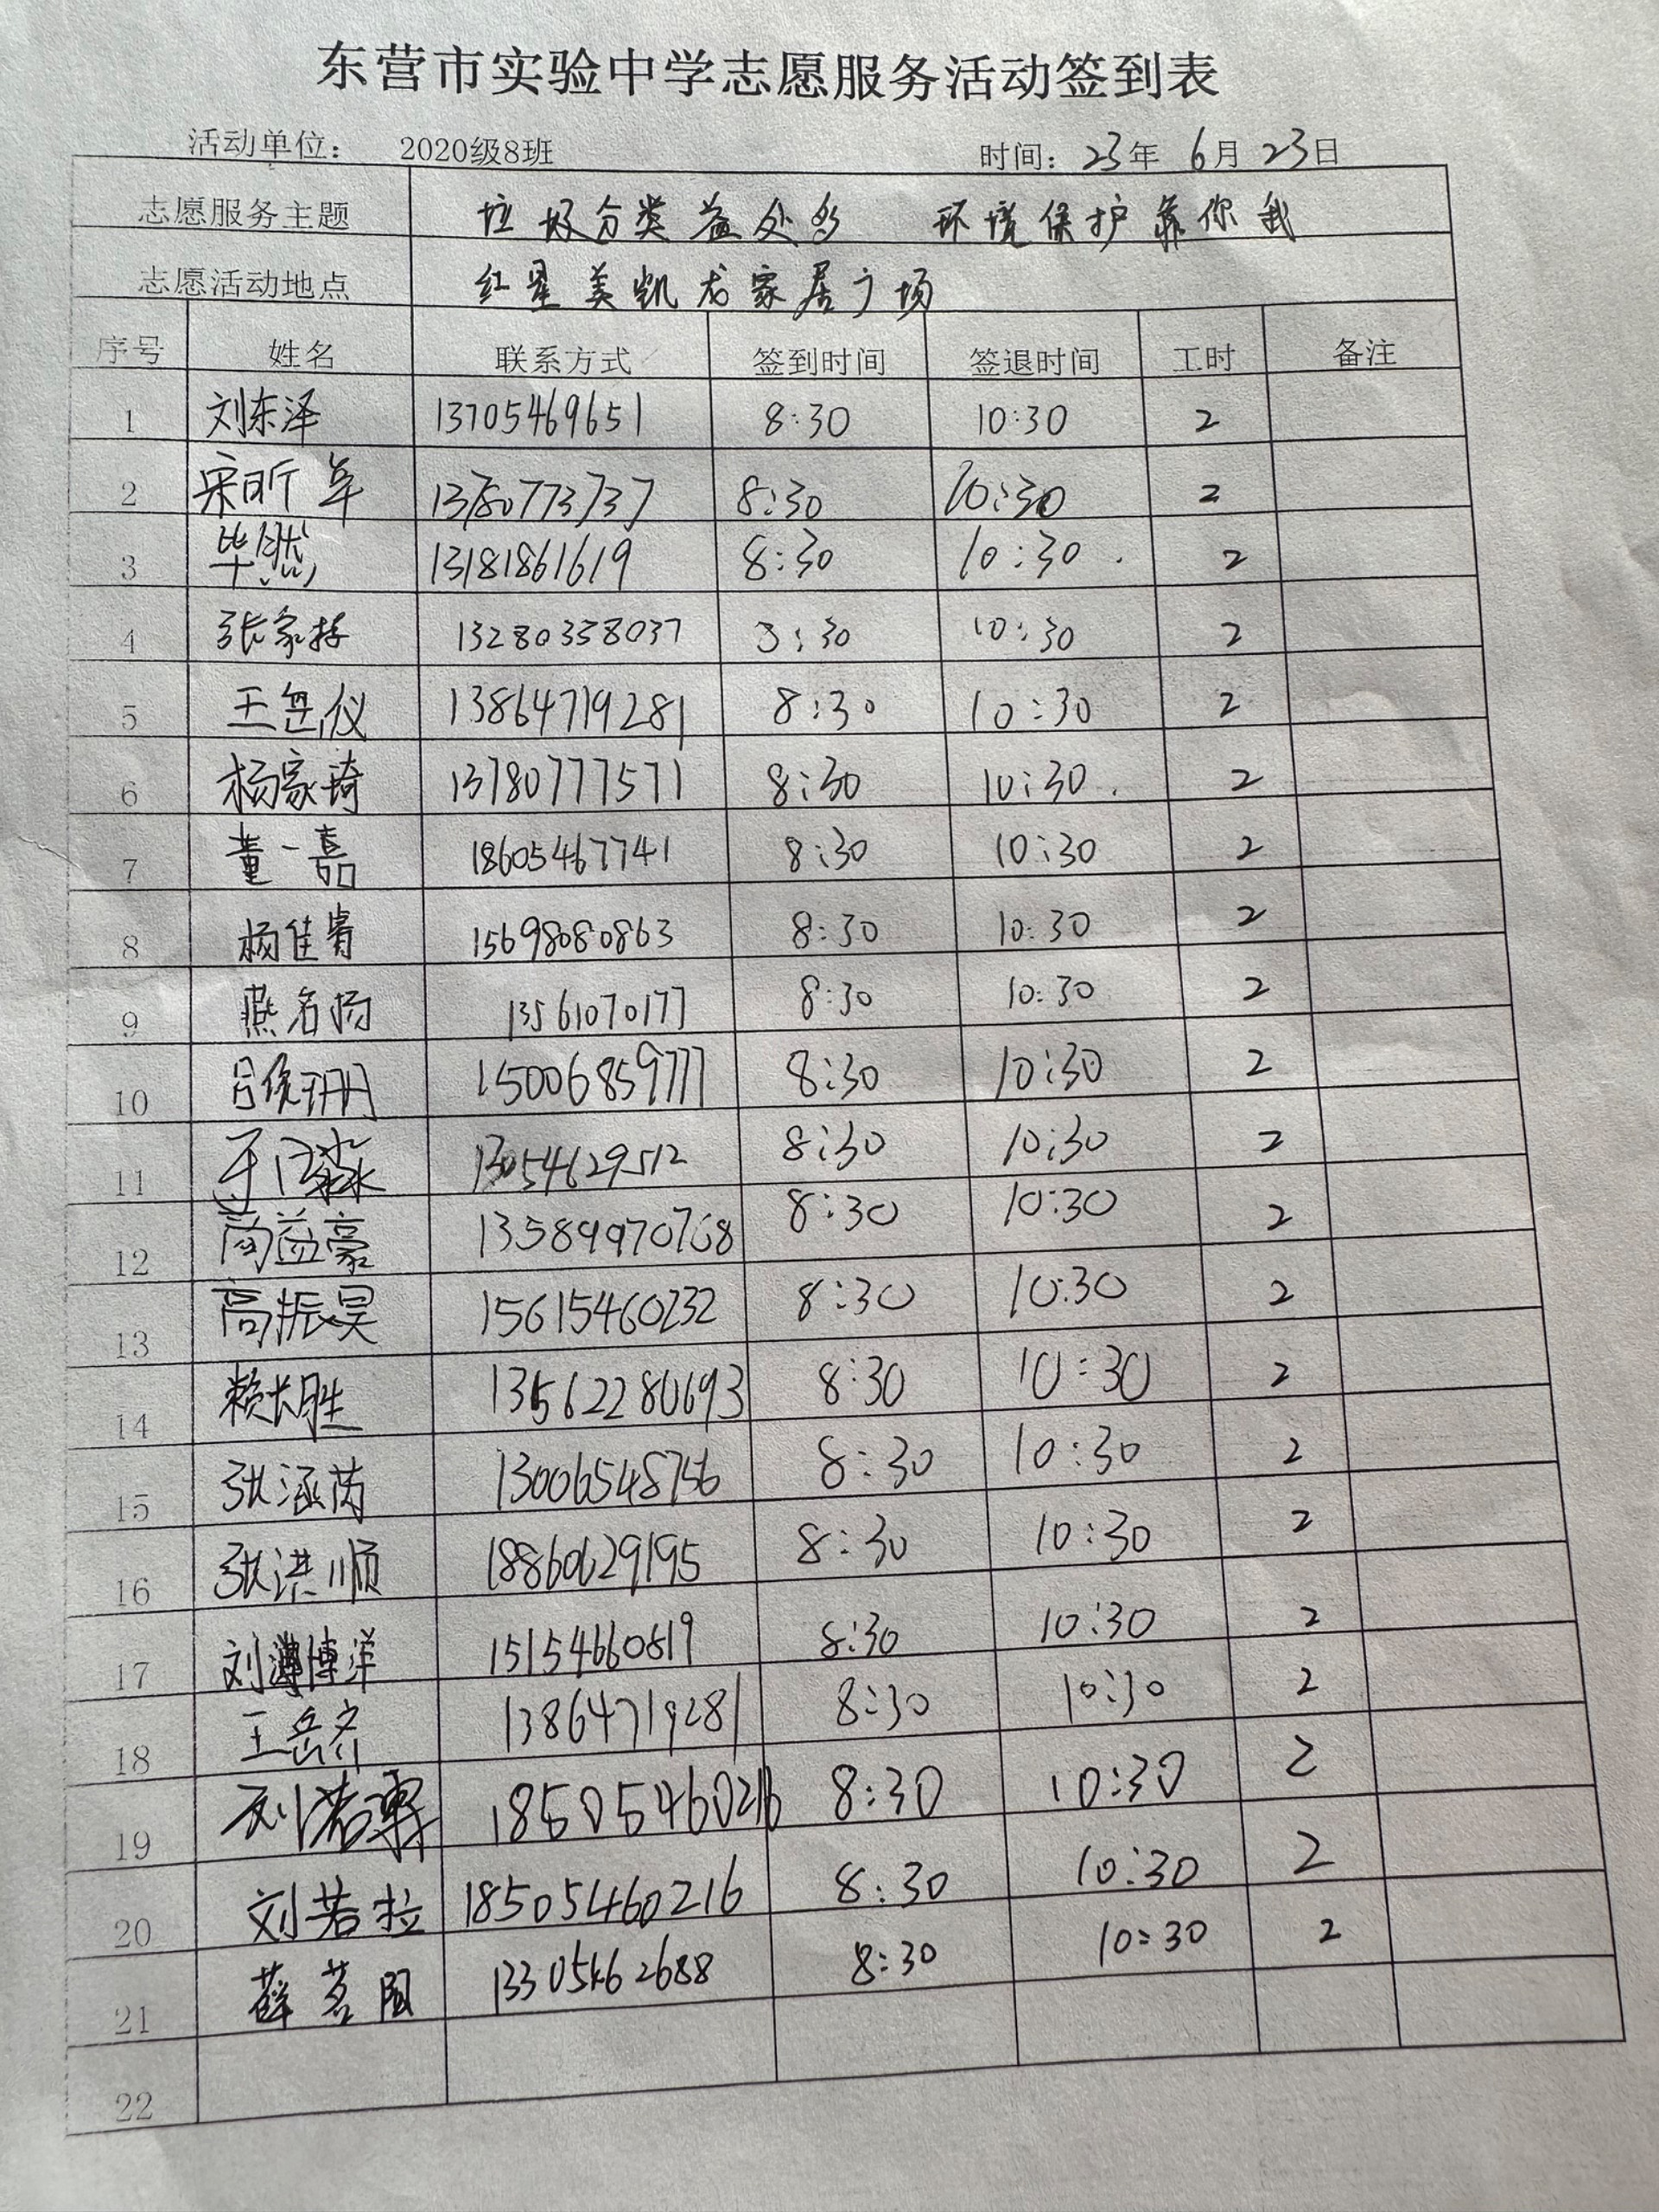 东营市实验中学志愿服务活动签到表
活动单位： 2020级8班 时间：23年 6月 23日
志愿服务主题 垃圾分类益处多 环境保护靠你我
志愿活动地点 红星美凯龙家居广场
序号 姓名 联系方式 签到时间 签退时间 工时 备注
1 刘东泽 13705469651 8:30 10:30 2
2 宋昕 13780773737 8:30 10:30 2
3 毕然 13181861619 8:30 10:30 2
4 张家 13280338037 8:30 10:30 2
5 王岳仪 13864719281 8:30 10:30 2
6 杨家琦 13780777571 8:30 10:30 2
7 董一嘉 18605467741 8:30 10:30 2
8 杨佳睿 15698080863 8:30 10:30 2
9 燕名扬 13561070177 8:30 10:30 2
10 吕 15006859777 8:30 10:30 2
11 8:30 10:30 2
12 商益豪 13589970768 8:30 10:30 2
13 高振昊 15615460232 8:30 10:30 2
14 赖长胜 13562280693 8:30 10:30 2
15 张涵芮 13006548756 8:30 10:30 2
16 张洪顺 18860629195 8:30 10:30 2
17 刘博洋 15154660819 8:30 10:30 2
18 王岳齐 13864719281 8:30 10:30 2
19 18505460216 8:30 10:30 2
20 刘若拉 18505460216 8:30 10:30 2
21 薛茗阳 13305462688 8:30 10:30 2
22